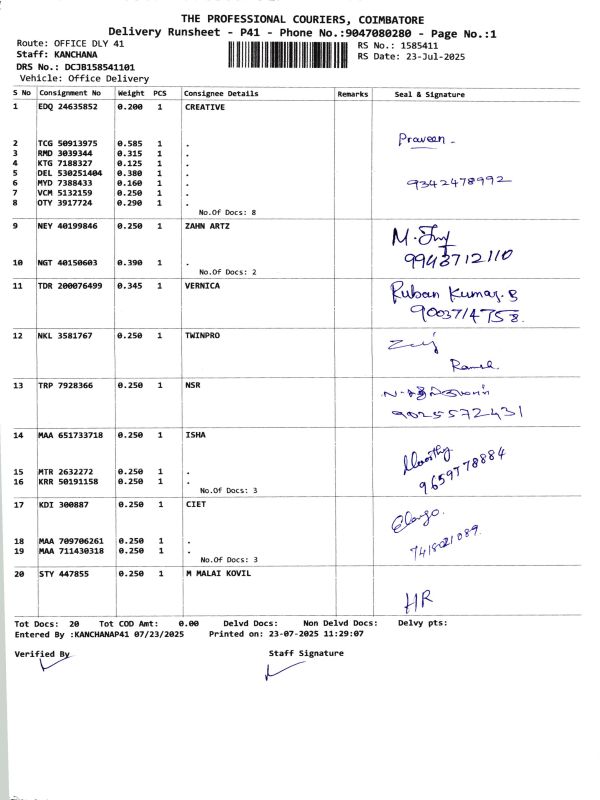 THE PROFESSIONAL COURIERS, COIMBATORE
Delivery Runsheet - P41 - Phone No.:9047080280 - Page No.:1
Route: OFFICE DLY 41 RS No.: 1585411
Staff: KANCHANA RS Date: 23-Jul-2025
DRS No.: DCJB158541101
Vehicle: Office Delivery
S No Consignment No Weight PCS Consignee Details Remarks Seal & Signature
1 EDQ 24635852 0.200 1 CREATIVE
Praveen
2 TCG 50913975 0.585 1 .
3 RMD 3039344 0.315 1 .
4 KTG 7188327 0.125 1 .
5 DEL 530251404 0.380 1 .
6 MYD 7388433 0.160 1 . 9342478992
7 VCM 5132159 0.250 1 .
8 OTY 3917724 0.290 1 .
No.Of Docs: 8
9 NEY 40199846 0.250 1 ZAHN ARTZ
9943712110
10 NGT 40150603 0.390 1 .
No.Of Docs: 2
11 TDR 200076499 0.345 1 VERNICA Ruban Kumar. B
9003714758.
12 NKL 3581767 0.250 1 TWINPRO
13 TRP 7928366 0.250 1 NSR
9025572431
14 MAA 651733718 0.250 1 ISHA
Moorthy
9659778884
15 MTR 2632272 0.250 1 .
16 KRR 50191158 0.250 1 .
No.Of Docs: 3
17 KDI 300887 0.250 1 CIET
Elango.
7418021089.
18 MAA 709706261 0.250 1 .
19 MAA 711430318 0.250 1 .
No.Of Docs: 3
20 STY 447855 0.250 1 M MALAI KOVIL
HR
Tot Docs: 20 Tot COD Amt: 0.00 Delvd Docs: Non Delvd Docs: Delvy pts:
Entered By :KANCHANAP41 07/23/2025 Printed on: 23-07-2025 11:29:07
Verified By Staff Signature